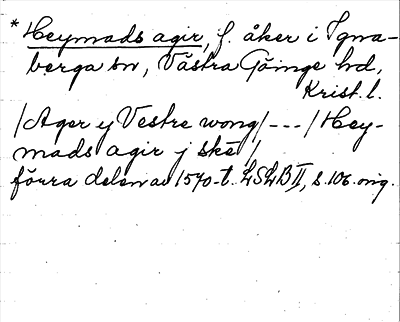 * Heymads agir, f. åker i Igna-
berga sn, Västra Göinge hd,
Krist. l.
/Ager ej Vestre wong/---/Hey-
mads agir j skē/,
förra delen av 1570-t. LSLB II, s. 106. orig.